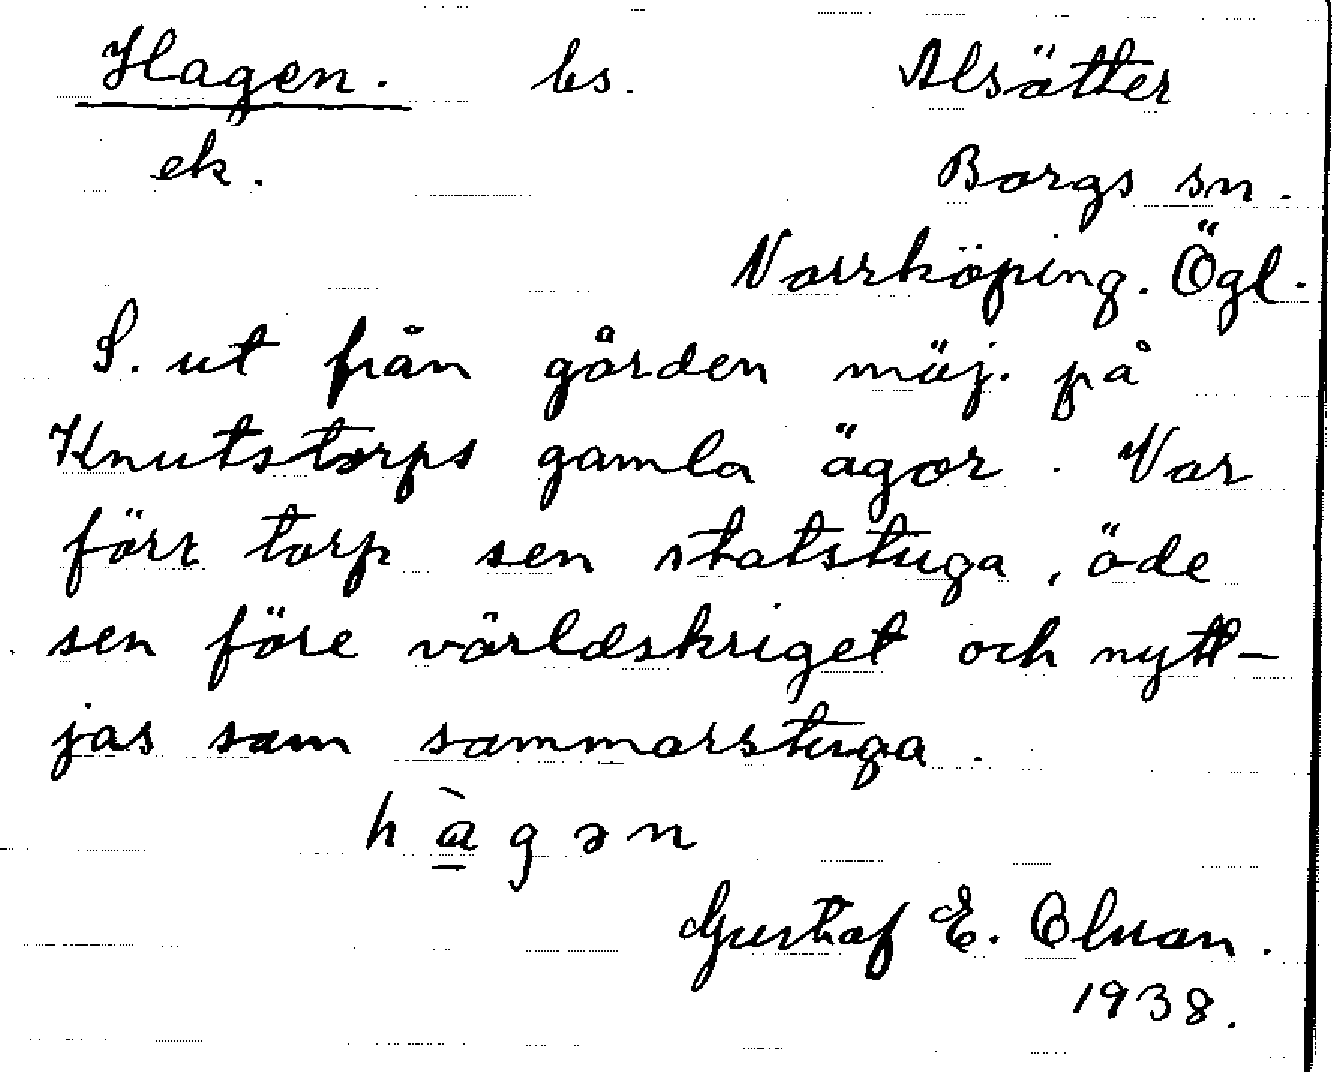 Hagen. bs. Alsätter
ek. Borgs sn.
Norrköping. Ögl.
S. ut från gården möj. på
Knutstorps gamla ägor. Var
förr torp sen statstuga, öde
sen före världskriget och nytt-
jas som sommarstuga.
hàgən
Gustaf E. Olsson.
1938.